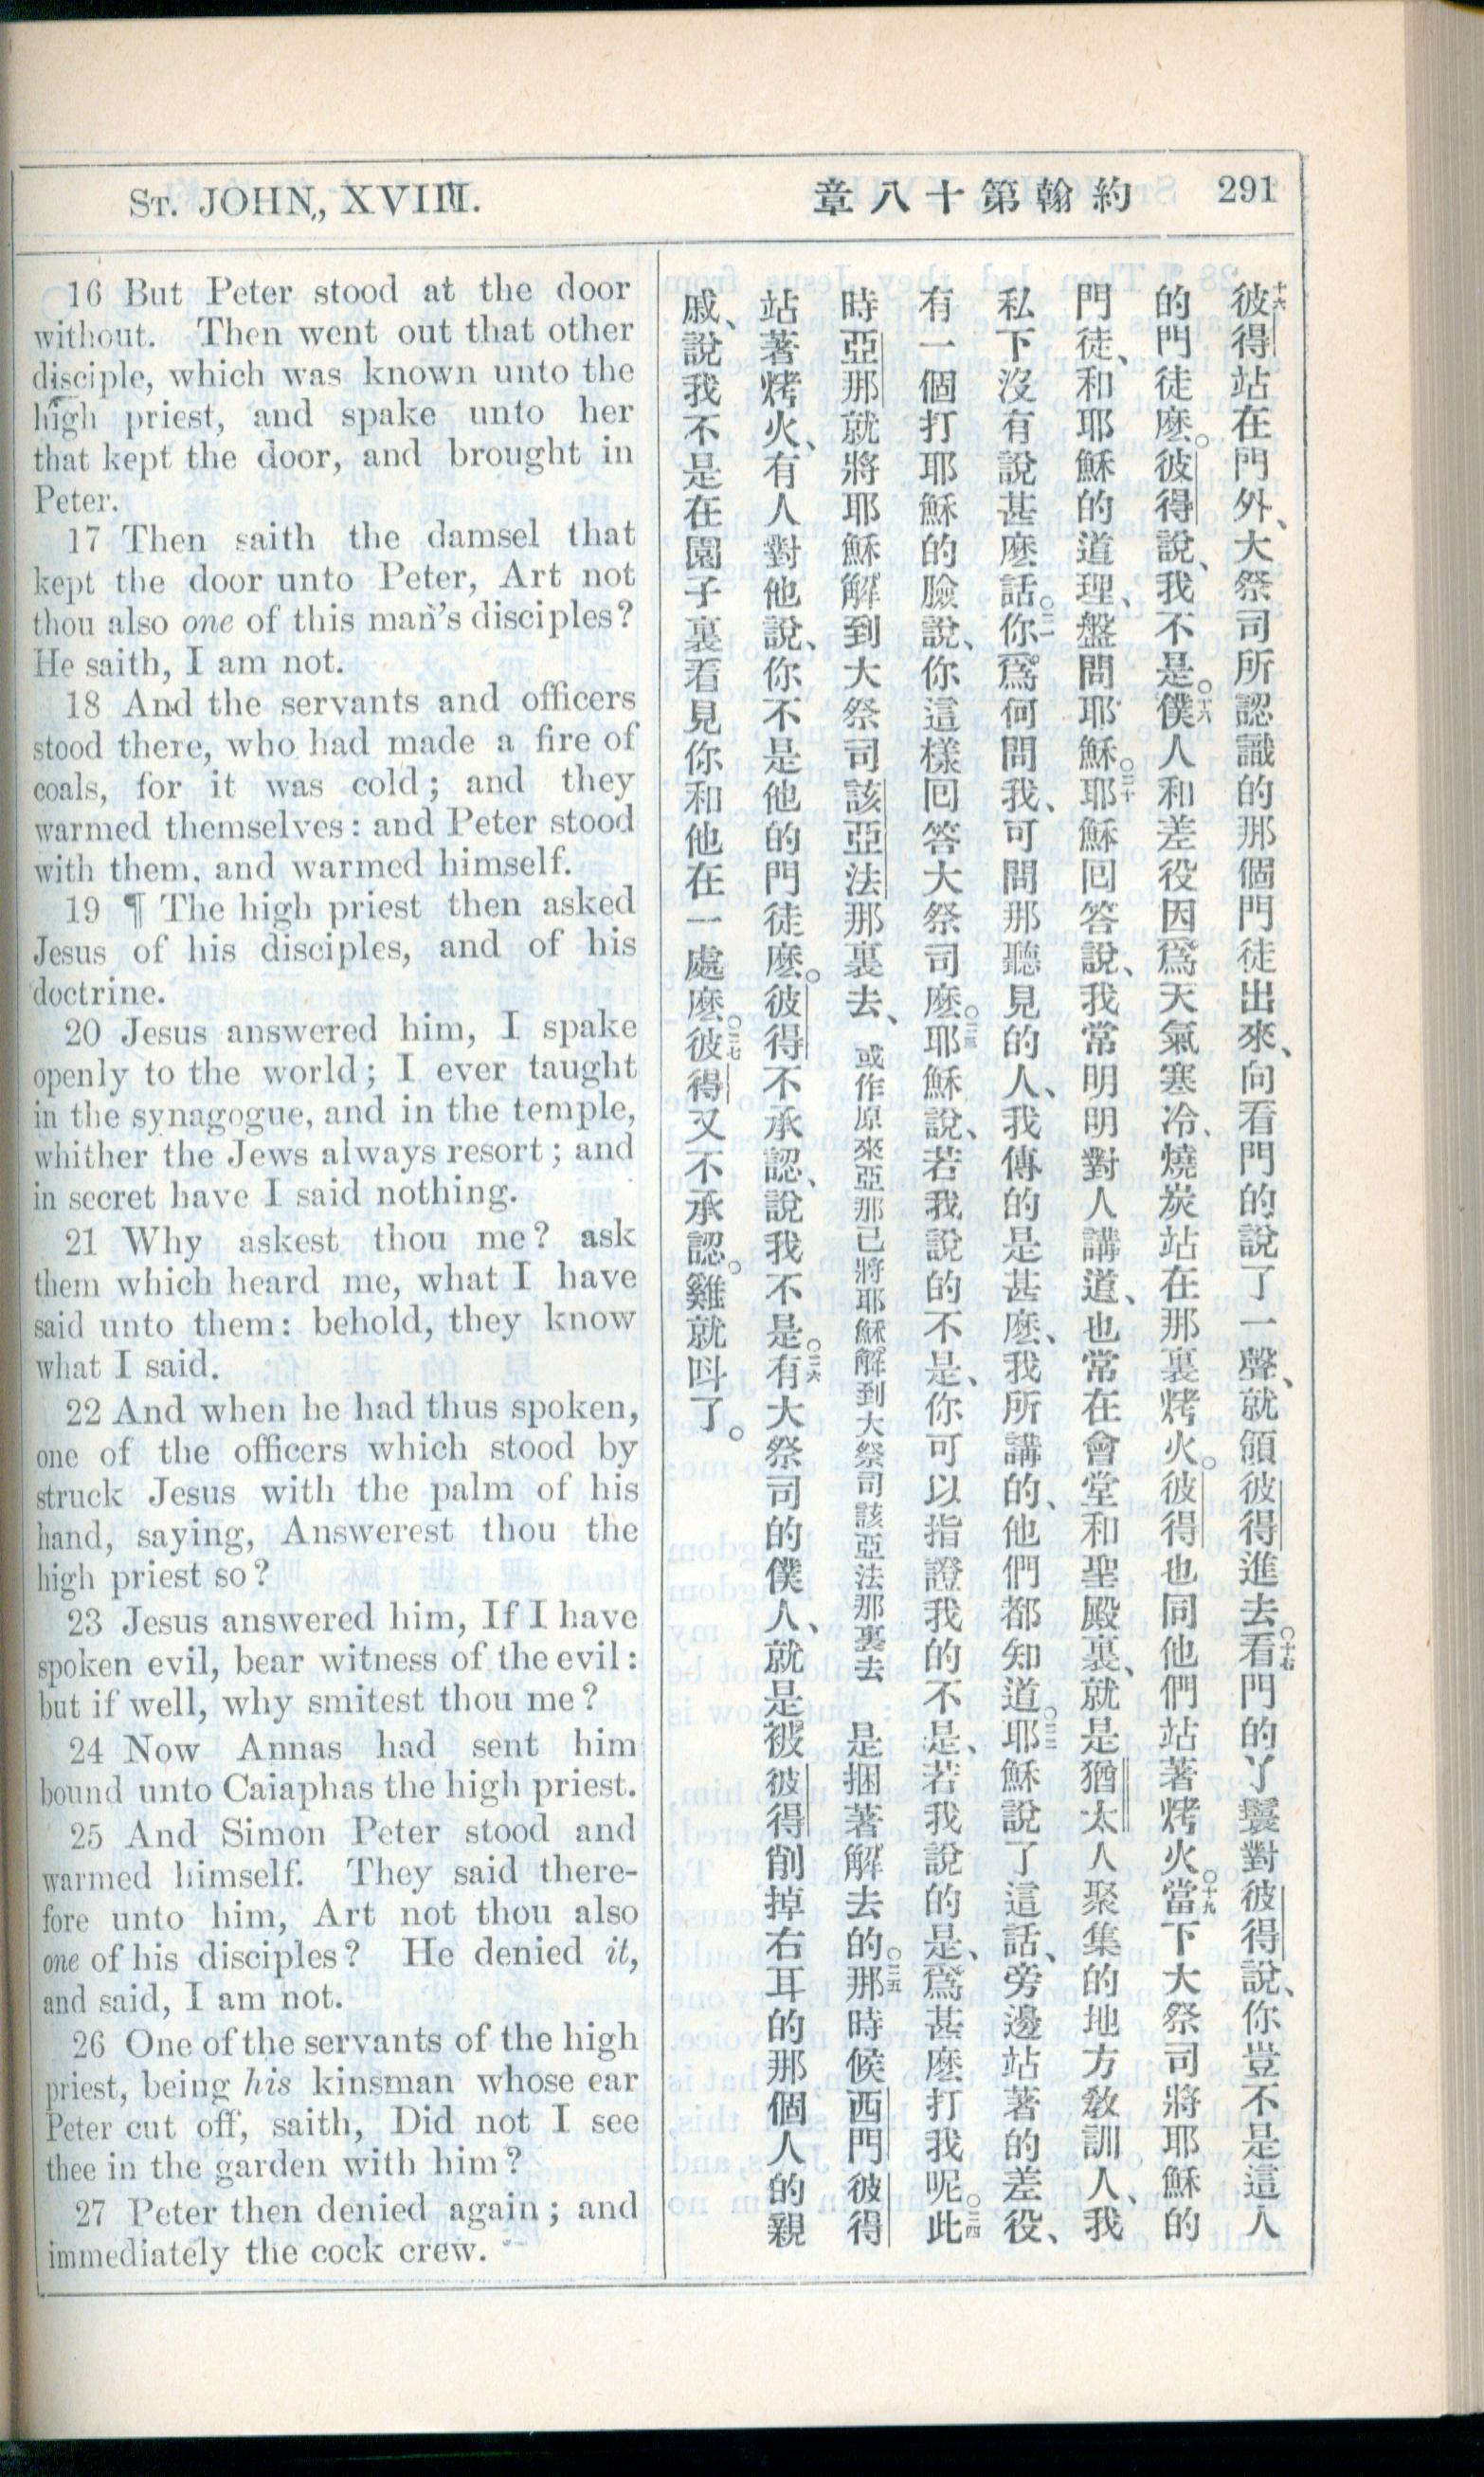 St. JOHN, XVIII.
章八十第翰約
291
16 But Peter stood at the door
without. Then went out that other
disciple, which was known unto the
high priest, and spake unto her
that kept the door, and brought in
Peter.
17 Then saith the damsel that
kept the door unto Peter, Art not
thou also one of this man's disciples?
He saith, I am not.
18 And the servants and officers
stood there, who had made a fire of
coals, for it was cold; and they
warmed themselves: and Peter stood
with them, and warmed himself.
19 ¶ The high priest then asked
Jesus of his disciples, and of his
doctrine.
20 Jesus answered him, I spake
openly to the world; I ever taught
in the synagogue, and in the temple,
whither the Jews always resort; and
in secret have I said nothing.
21 Why askest thou me? ask
them which heard me, what I have
said unto them: behold, they know
what I said.
22 And when he had thus spoken,
one of the officers which stood by
struck Jesus with the palm of his
hand, saying, Answerest thou the
high priest so?
23 Jesus answered him, If I have
spoken evil, bear witness of the evil:
but if well, why smitest thou me?
24 Now Annas had sent him
bound unto Caiaphas the high priest.
25 And Simon Peter stood and
warmed himself. They said there-
fore unto him, Art not thou also
one of his disciples? He denied it,
and said, I am not.
26 One of the servants of the high
priest, being his kinsman whose ear
Peter cut off, saith, Did not I see
thee in the garden with him?
27 Peter then denied again; and
immediately the cock crew.
十六彼得站在門外、大祭司所認識的那個門徒出來、向看門的說了一聲、就領彼得進去。十七看門的丫鬟對彼得說、你豈不是這人
的門徒麽。彼得說、我不是。十八僕人和差役因爲天氣寒冷、燒炭站在那裏烤火。彼得也同他們站著烤火。十九當下大祭司將耶穌的
門徒、和耶穌的道理、盤問耶穌。二十耶穌囘答說、我常明明對人講道、也常在會堂和聖殿裏、就是猶太人聚集的地方教訓人、我
私下沒有說甚麽話。二一你爲何問我、可問那聽見的人、我傳的是甚麽、我所講的、他們都知道。二二耶穌說了這話、旁邊站著的差役、
有一個打耶穌的臉說、你這樣囘答大祭司麽。二三耶穌說、若我說的不是、你可以指證我的不是、若我說的是、爲甚麽打我呢。二四此
時亞那就將耶穌解到大祭司該亞法那裏去、或作原來亞那已將耶穌解到大祭司該亞法那裏去 是捆著解去的。二五那時候西門彼得
站著烤火、有人對他說、你不是他的門徒麽。彼得不承認、說我不是。二六有大祭司的僕人、就是被彼得削掉右耳的那個人的親
戚、說我不是在園子裏看見你和他在一處麽。二七彼得又不承認。雞就呌了。